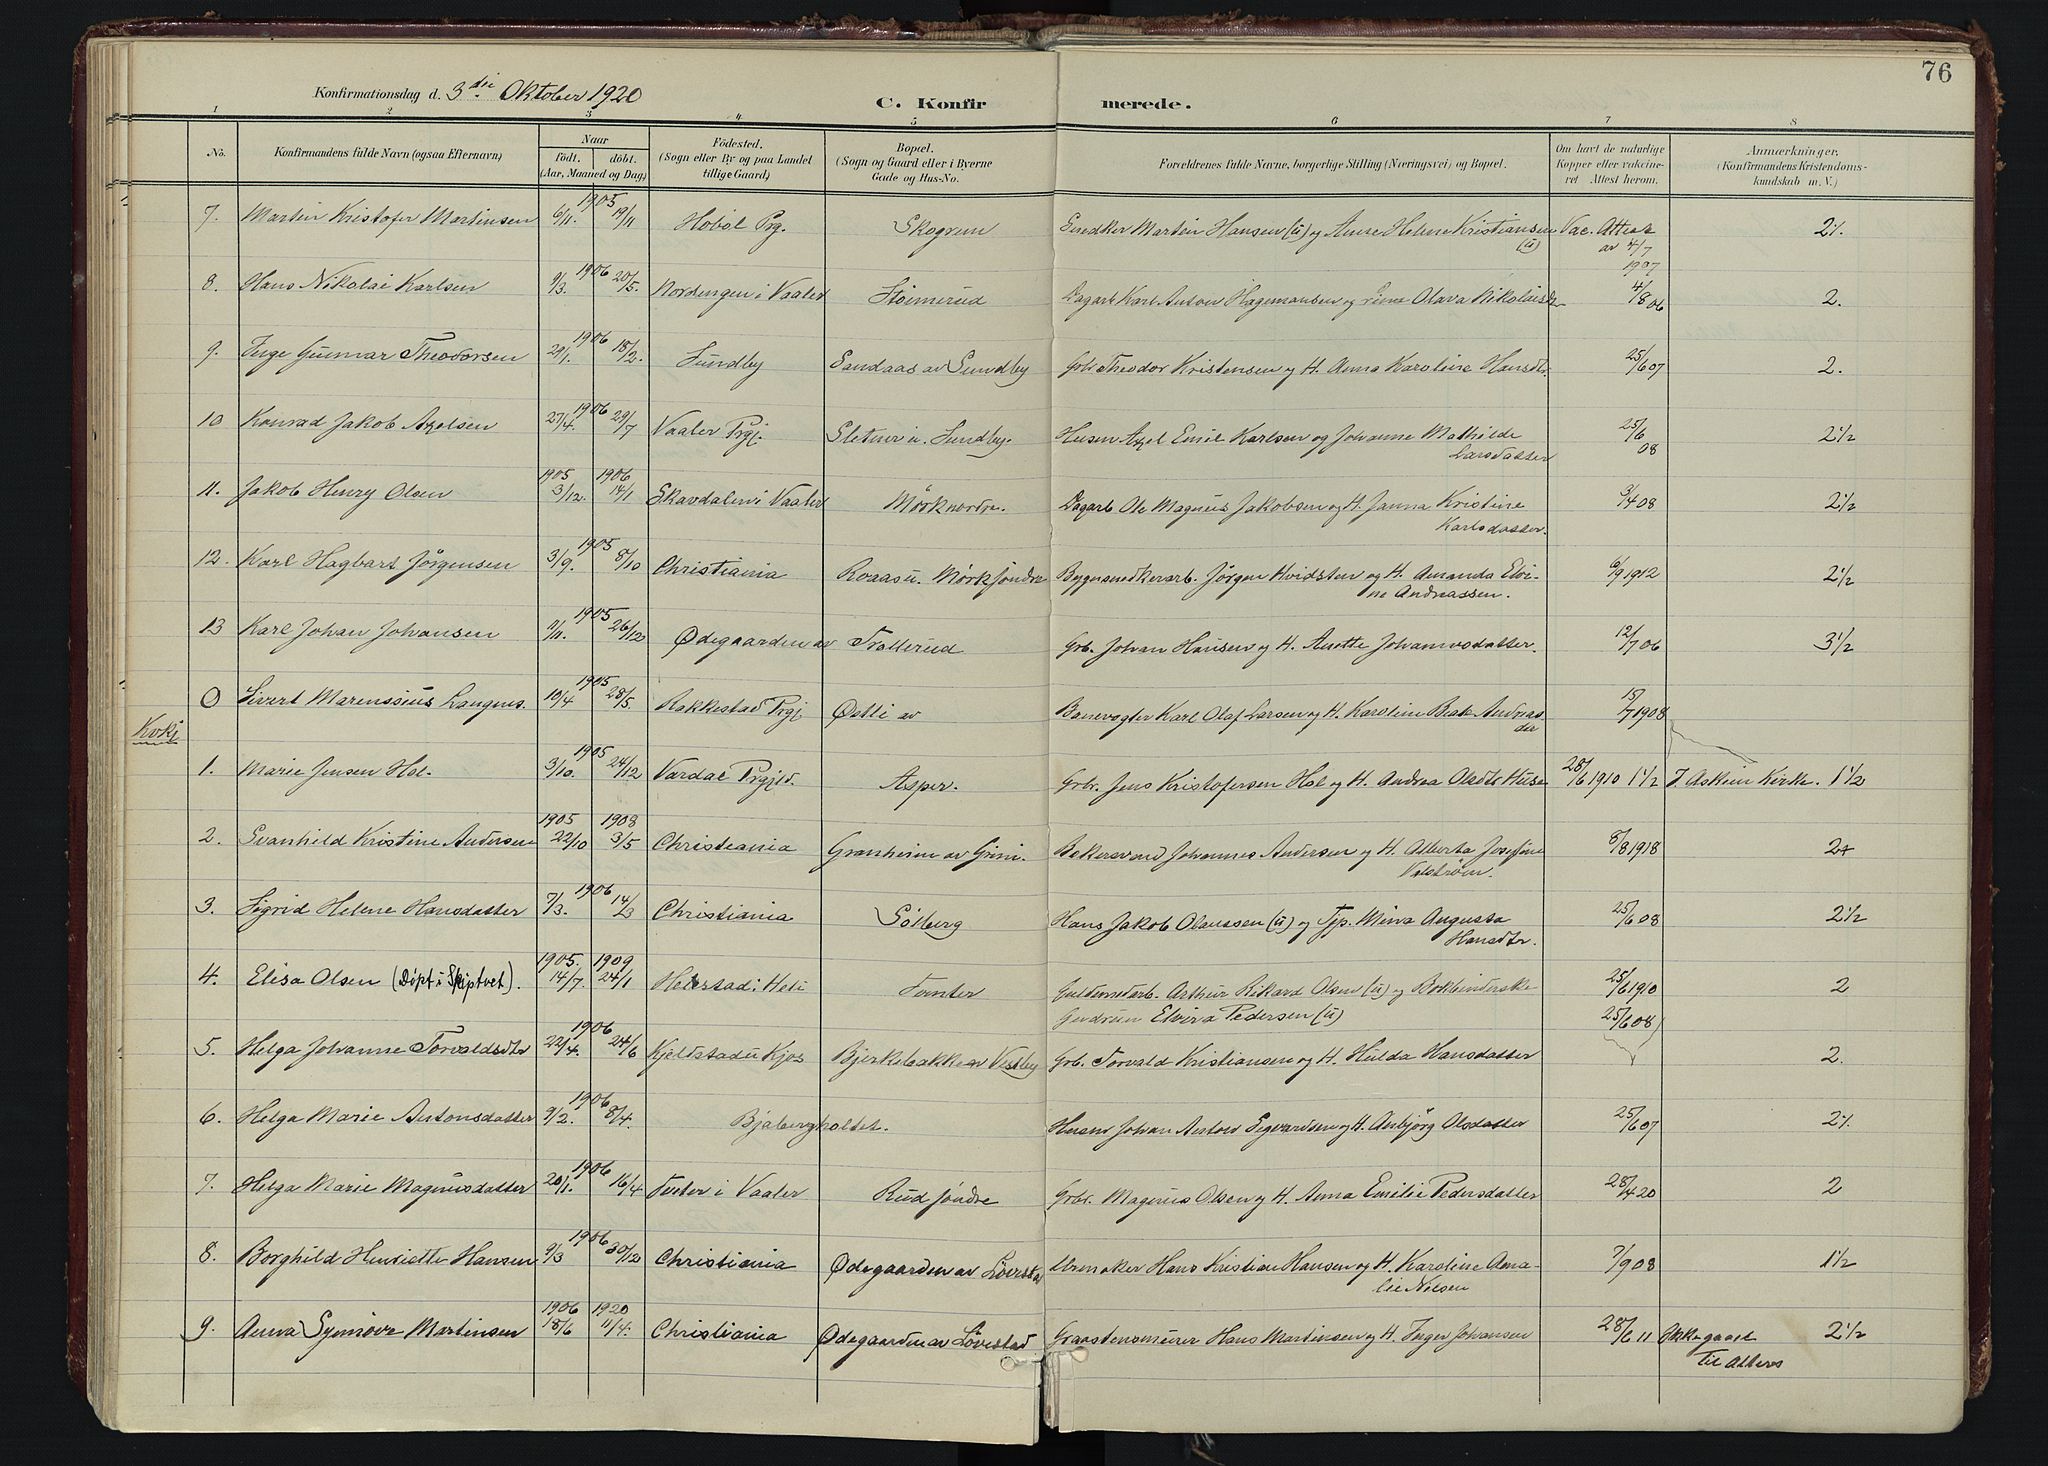 76
Konfirmationsdag d. 3die Oktober 1920
C. Konfir merede.
1 2 3 4 5 6 7 8
No. Konfirmandens fulde Navn (ogsaa Efternavn) Naar født. døbt. (Aar, Maaned og Dag) Fødested. (Sogn eller By og paa Landet tillige Gaard) Bopæl. (Sogn og Gaard eller i Byerne Gade og Hus-No. Forældrenes fulde Navne, borgerlige Stilling (Næringsvei) og Bopæl. Om havt de naturlige Kopper eller vakcineret Attest herom. Anmærkninger. (Konfirmandens Kristendomskundskab m. V.)
7. Martin Kristofer Martinsen 1905 6/11. 19/11 Hobøl Prg. Skogrun Snedker Martin Hansen (u) og Anne Helene Kristiansen (u) Vac. Attest av 4/7 1907 2%
8. Hans Nikolai Karlsen 1906 9/3. 20/5. Nordengen i Vaaler Stømerud Dagarb. Karl Anton Hagemansen og Olava Nikolaisdtr 4/8 06 2.
9. Inge Gunnar Theodorsen 1906 29/1. 18/2. Sundby Sandaas av Sundby Grbr Theodor Kristensen og H. Anna Karoline Hansdtr. 25/6 07 2.
10 Konrad Jakob Axelsen 1906 27/4. 29/7 Vaaler Prgj. Sletner u. Sundby. Husm Axel Emil Karlsen og Johanne Mathilde Larsdatter 25/6 08 2 1/2
11. Jakob Henry Olsen 1905 3/12. 1906 14/1 Skavdalen i Vaaler Mørk nordre. Dagarb Ole Magnus Jakobsen og H. Janna Kristine Karlsdatter. 3/4 08 2 1/2
12. Karl Hagbart Jørgensen 1905 3/9. 8/10 Christiania Roaas u. Mørk søndre Bygnsnedkerarb. Jørgen Hvidsten og H. Amanda Elvine Andreassen. 6/9 1912 2 1/2
13 Karl Johan Johansen 1905 11/11. 26/12 Ødegaarden av Trollerud Grb. Johan Hansen og H. Anette Johannesdatter. 12/7 06 3 1/2
0 Sivert Marensius Langnes. 1905 10/4 28/5 Rakkestad Prgj Østli av Banevogter Karl Olaf Larsen og H. Karoline Beate Andreasdtr 15/7 1908
Kvkj
1. Marie Jensen Hol. 1905 3/10. 24/12 Vardal Prgjd. Asper. Grbr. Jens Kristofersen Hol og H. Andrea Olsdtr Huse 28/6 1910 1 1/2 I Askim Kirke. 1 1/2
2. Svanhild Kristine Andersen 1905 22/10 1908 3/5 Christiania Granheim av Grini. Bakersvend Johannes Andersen og H. Alberta Josefine 8/8 1918 2+
3. Sigrid Helene Hansdatter 1906 7/3. 14/3 Christiania Sølberg Hans Jakob Olaussen (u) og Tjp. Mina Augusta Hansdtr. 25/6 08 2 1/2
4. Elisa Olsen (Døpt i Skiptvet). 1905. 14/7. 1909 24/1 Helestad i Heli Tomter Guldsmedarb. Arthur Rikard Olsen (u) og Bokbinderske Gudrun Elvira Pedersen (u) 25/6 1910 2
5. Helga Johanne Torvaldsdtr 1906 22/4. 24/6 Kjeldstad u Kjos Bjerkebakken av Vestby Grb. Torvald Kristiansen og H. Hulda Hansdatter 25/6 08 2.
6. Helga Marie Antonsdatter 1906 9/2. 8/4. Bjabergholdet. Husm Johan Anton Sigvardsen og H. Anbjørg Olsdatter 25/6 07 2%
7. Helga Marie Magnusdatter 1906 20/1. 16/4 Tveter i Vaaler Rud søndre Grbr. Magnus Olsen og H. Anna Emilie Pedersdatter 28/4 20 2
8. Borghild Henriette Hansen 1906 9/3 30/12 Christiania Ødegaarden av Løvestad Urmaker Hans Kristian Hansen og H. Karoline Amalie Nilsen 7/9 08 1 1/2
9. Anna Synnøve Martinsen 1906 18/6 1920 11/4. Christiania Ødegaarden av Løvestad Graastensmurer Hans Martinsen og H. Inger Johansen 28/6 11 Ikke gaaet til Alters 2 1/2